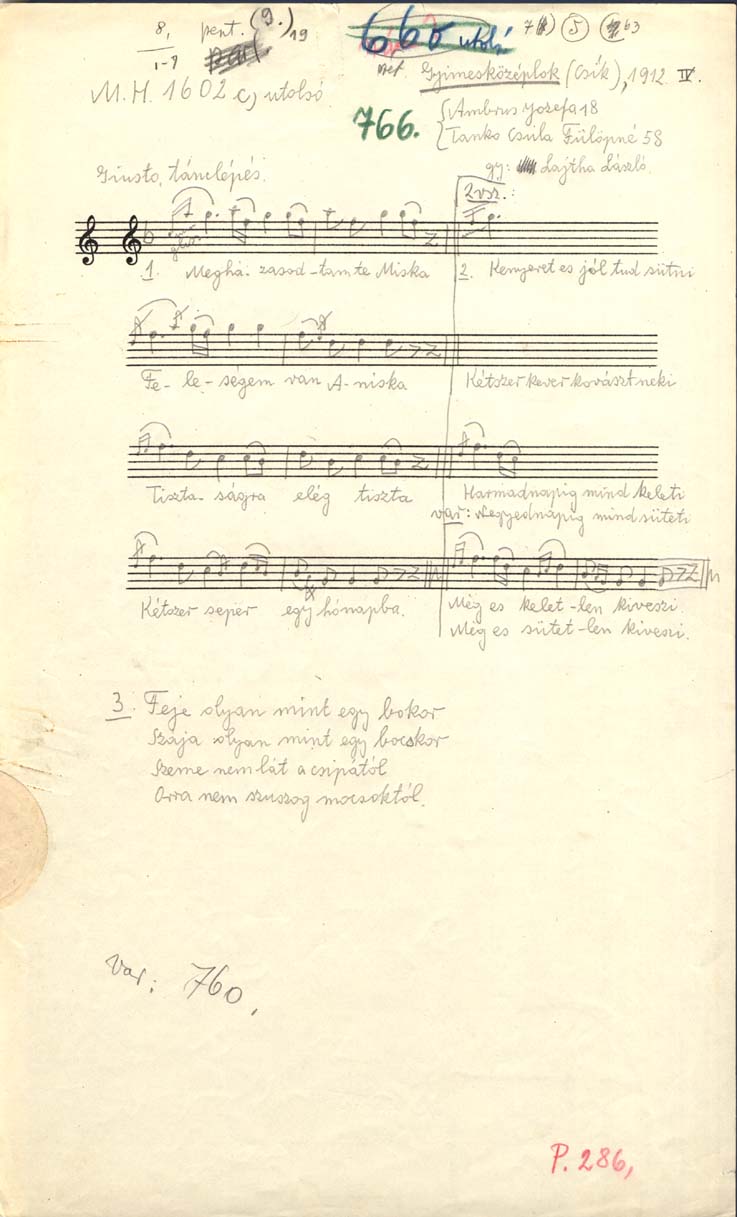 8, pent. (9.) 19
1-7
660 utolsó
7 5 63
M. H. 1602 c, utolsó
Gyimesközéplok (Csík), 1912 IV.
766.
Ambrus Jozefa 18
Tanko Csula Fülöpné 58
gy: Lajtha László.
Giusto, tánclépés.
2vsz.:
1. Meghá- zasod-tam te Miska
2. Kenyeret es jól tud sütni
Fe- le- ségem van A-niska
Kétszer kever kovászt neki
Tiszta- ságra elég tiszta
Harmadnapig mind keleti
var: Negyednápig mind süteti
Kétszer seper egy hónapba.
Még es kelet-len kiveszi.
Még es sütet-len kiveszi.
3. Feje olyan mint egy bokor
Szája olyan mint egy bocskor
Szeme nem lát a csipától
Orra nem szuszog mocsoktól.
Var: 760.
P. 286,